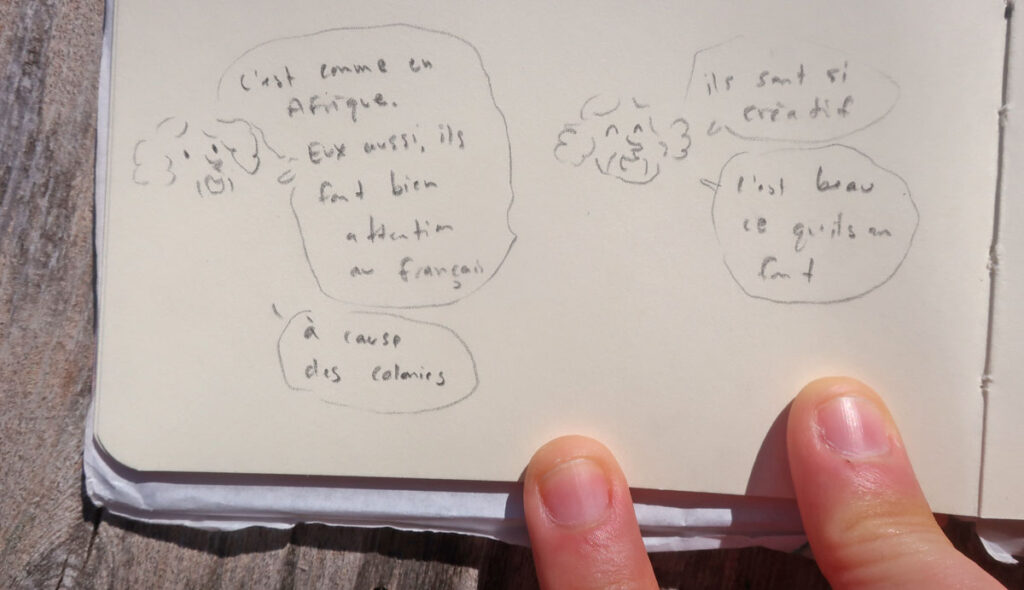 c'est comme en
Afrique.
Eux aussi, ils
font bien
attention
au français
à cause
des colonies
ils sont si
créatif
c'est beau
ce qu'ils en
font